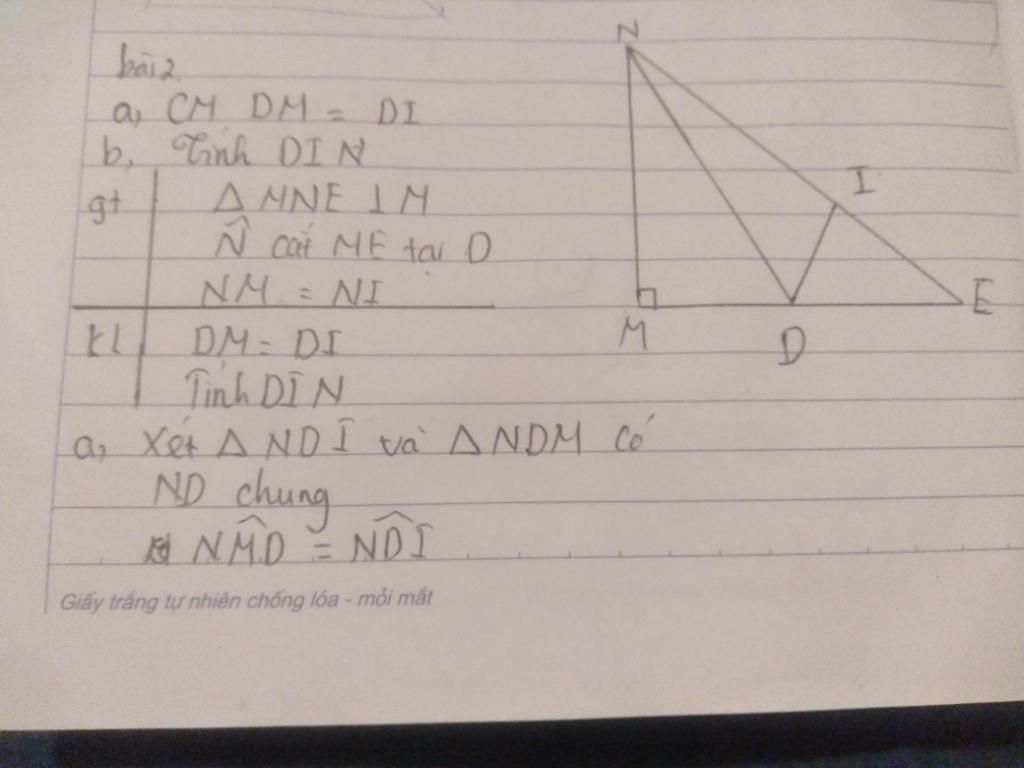 bài 2.
a, CM DM = DI
b, Tính DIN
gt △ MNE ⊥ M
N̂ cắt ME tại D
NM = NI
kl DM = DI
Tính DÎN
a, Xét △ NDI và △ NDM có
ND chung
NM̂D = ND̂I
N
I
E
M
D
Giấy trắng tự nhiên chống lóa - mỏi mắt